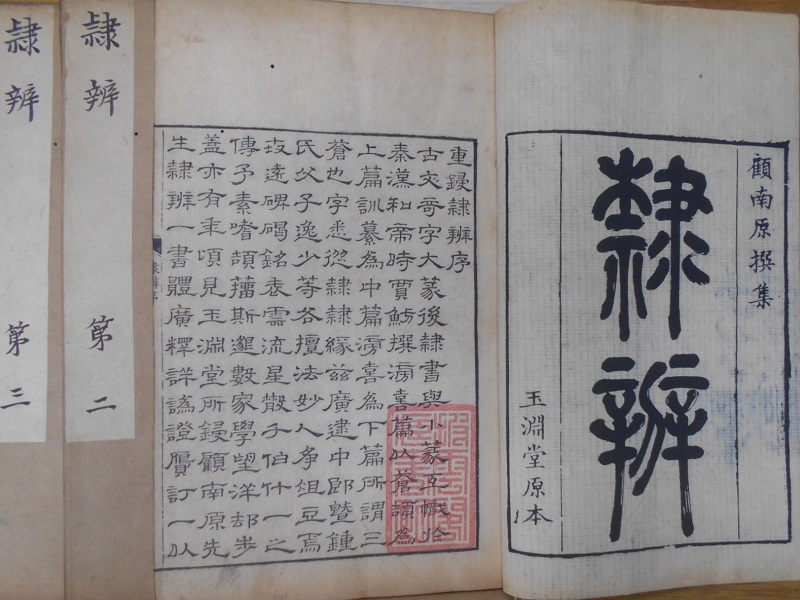 顧南原撰集
隸辨
玉淵堂原本
重鋟隸辨序
古文奇字大篆後隸書與小篆互
秦漢和帝時賈魴撰滂喜篇以蒼頡為
上篇訓纂為中篇滂喜為下篇所謂三
蒼也字悉從隸隸緣茲廣逮中郎曁鍾
氏父子逸少等各擅法妙人爭俎豆焉
攷遠碑碣銘表雲流星散才伯什一之
傳予素嗜頡籒斯邈數家學望洋却步
蓋亦有年頃見玉淵堂所鋟顧南原先
生隸辨一書體廣釋詳譌證贗訂一以
隸辨
第二
隸辨
第三